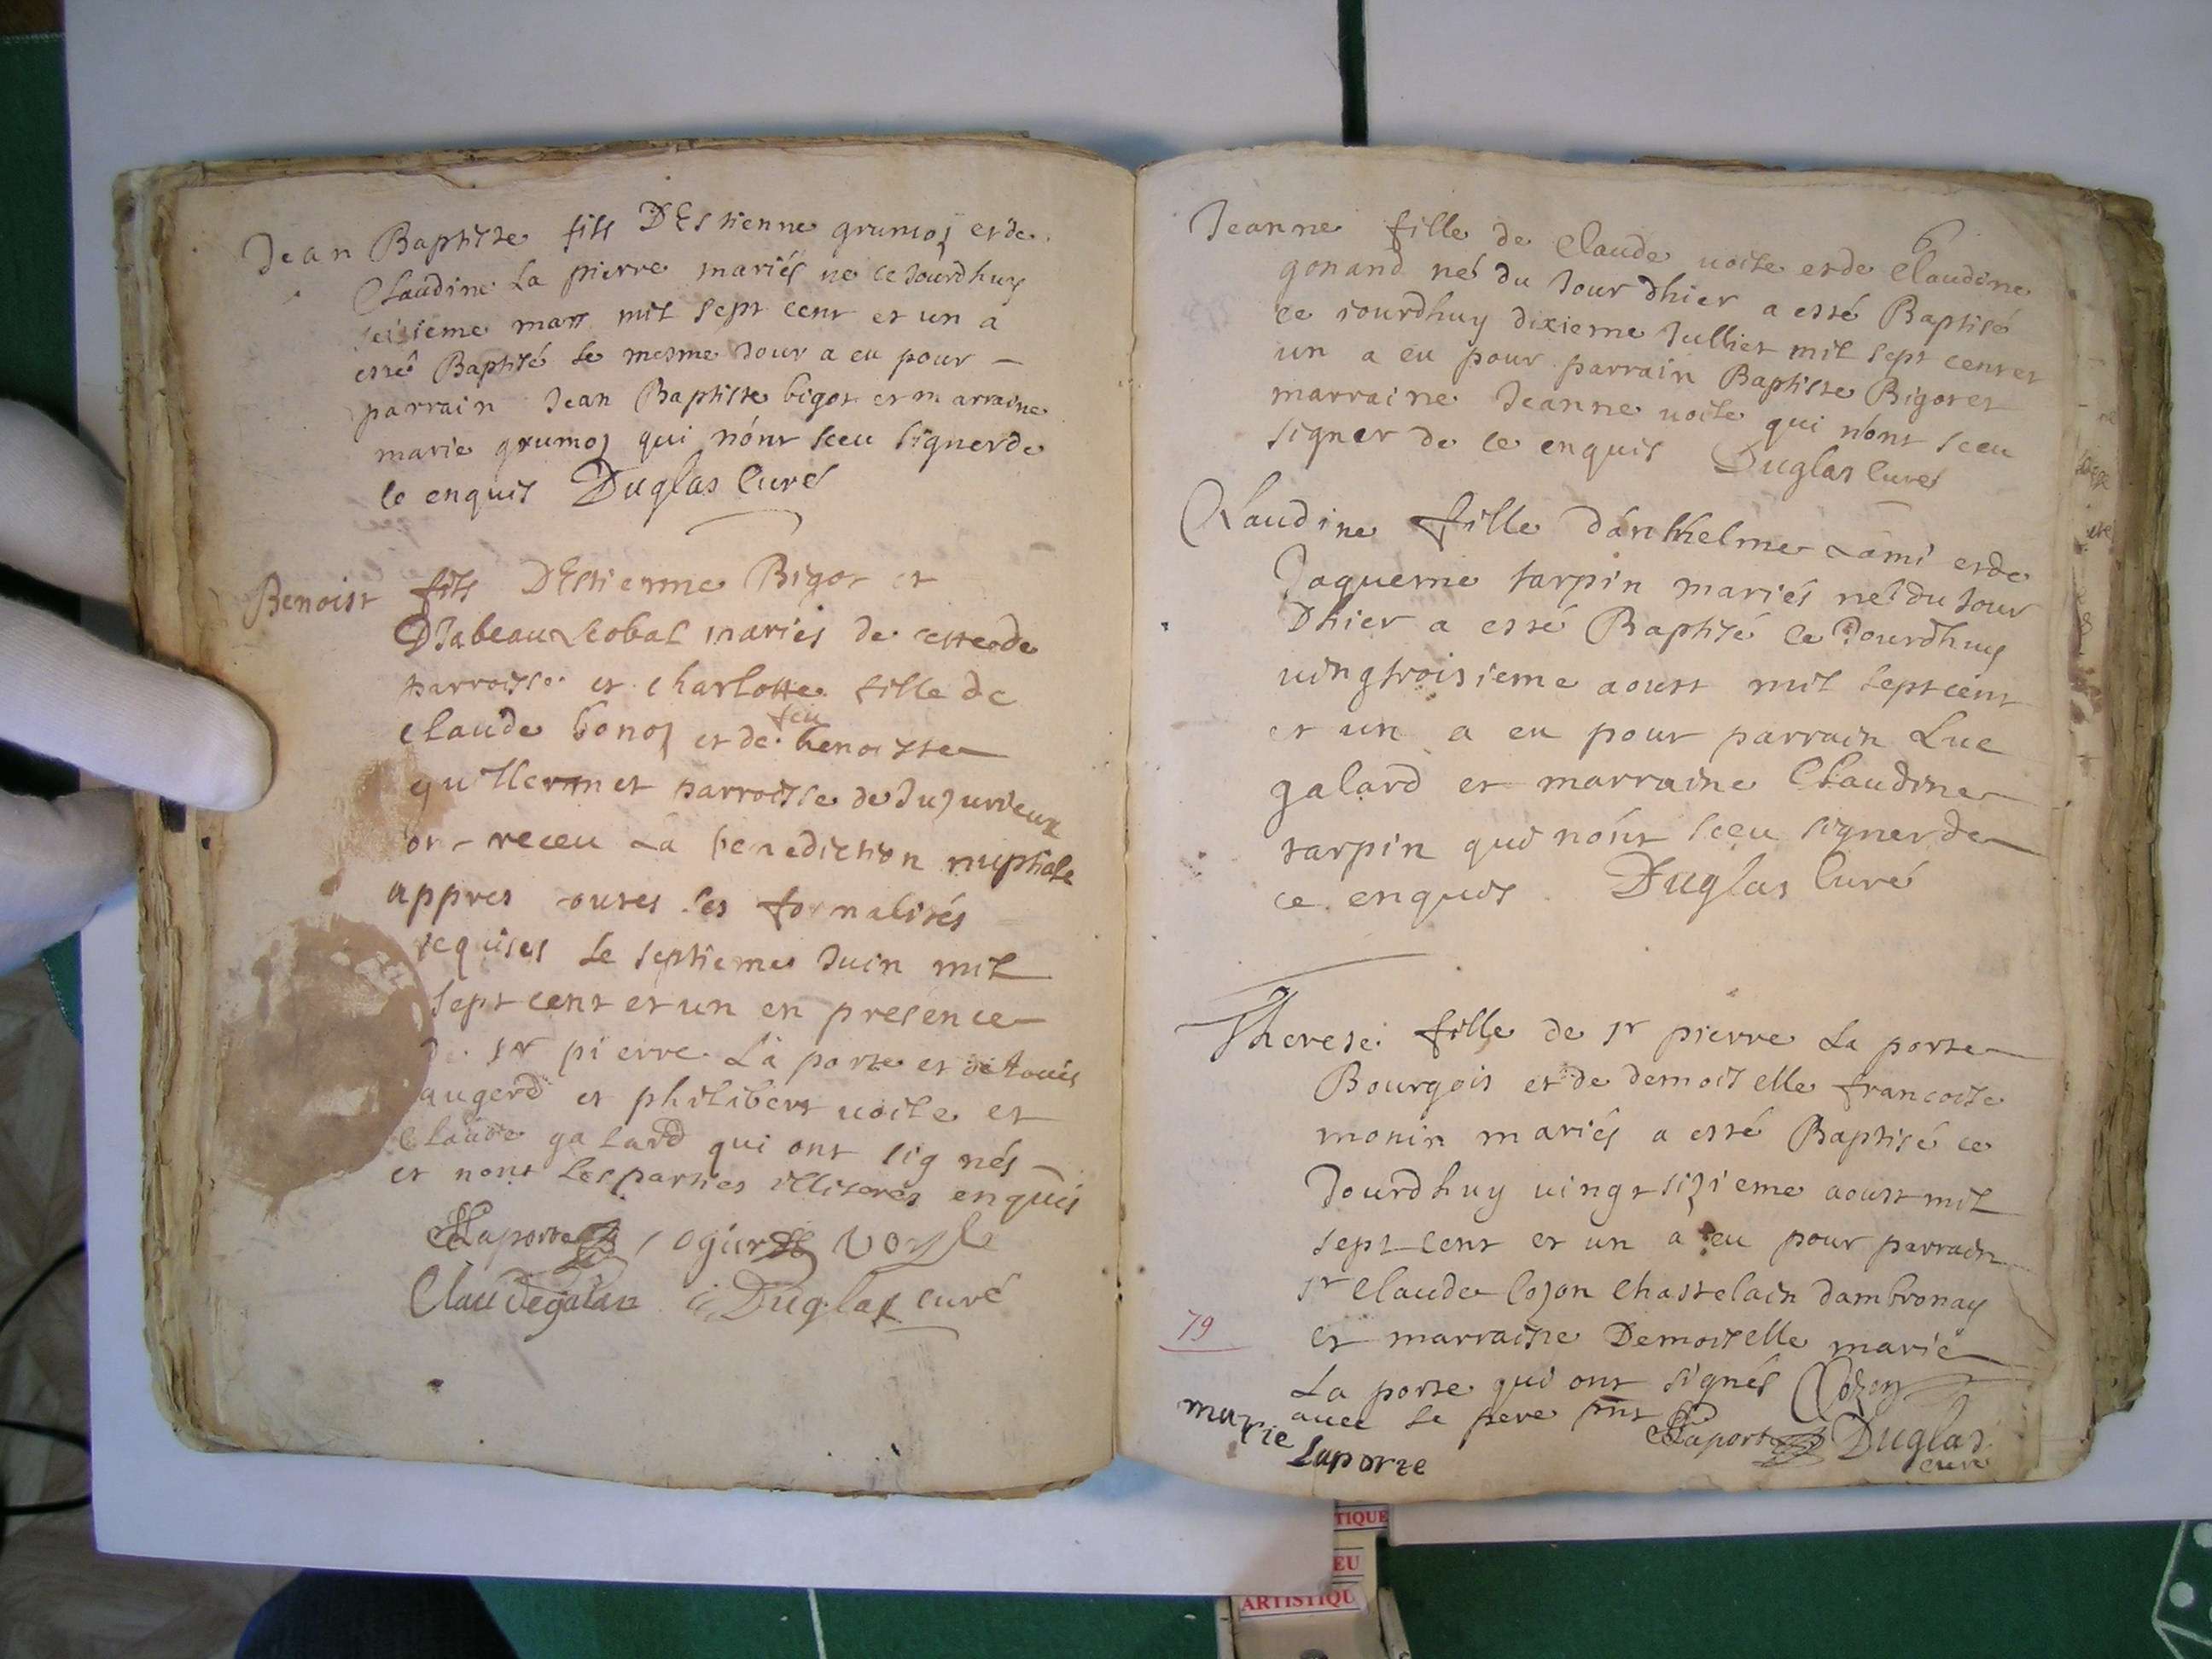 Jean Baptiste fils DEstienne grumoz et de
Claudine La pierre mariés ne ce Jourdhuy
seizieme mars mil sept cent et un a
esté Baptisé le mesme Jour a eu pour –
parrain Jean Baptiste bigot et marraine
marie grumoz qui nónt sceu signer de
ce enquis Duglas Curé
Benoist fils DEstienne Bigot et
DIsabeau mariés de cette de
parroisse et charlotte fille de
feu
claude bonoz et de benoiste
guillermet parroisse de Jujurieux
ont receu La benediction nuptiale
appres toutes les formalités
requises le septieme Juin mil
sept cent et un en presence
de sr pierre La porte et de Louis
augerd et philibert voile et
Claude galard qui ont signés –
et nont les parties illiterés enquis
Laporte ogier voyle
Claude galar Duglas curé
Jeanne fille de Claude voile et de Claudine
gonand né du Jour dhier a esté Baptisé
ce jourdhuy dixieme Jullier mil sept cent et
un a eu pour parrain Baptiste Bigot et
marraine Jeanne voile qui nónt sceu
signer de ce enquis Duglas Curé
Claudine fille dánthelme Lámi et de
Jaqueme tarpin mariés né du Jour
Dhier a esté Baptisé ce Jourdhuy
vingtroisieme aoust mil sept cent
et un a eu pour parrain Luc
galard et marraine Claudine
tarpin qui nónt sceu signer de
ce enquis Duglas Curé
Therese fille de sr pierre La porte
Bourgois et de demoiselle francoise
monin mariés a esté Baptisé ce
Jourdhuy vingt sizieme aoust mil
sept cent et un a eu pour parrain
sr Claude Cozon Chastelain dambronay
79
et marraine Demoiselle marie
La porte qui ont signés Cozon
avec le pere pnt Laporte Duglas
curé
marie
laporte
TIQUE
EU
ARTISTIQU